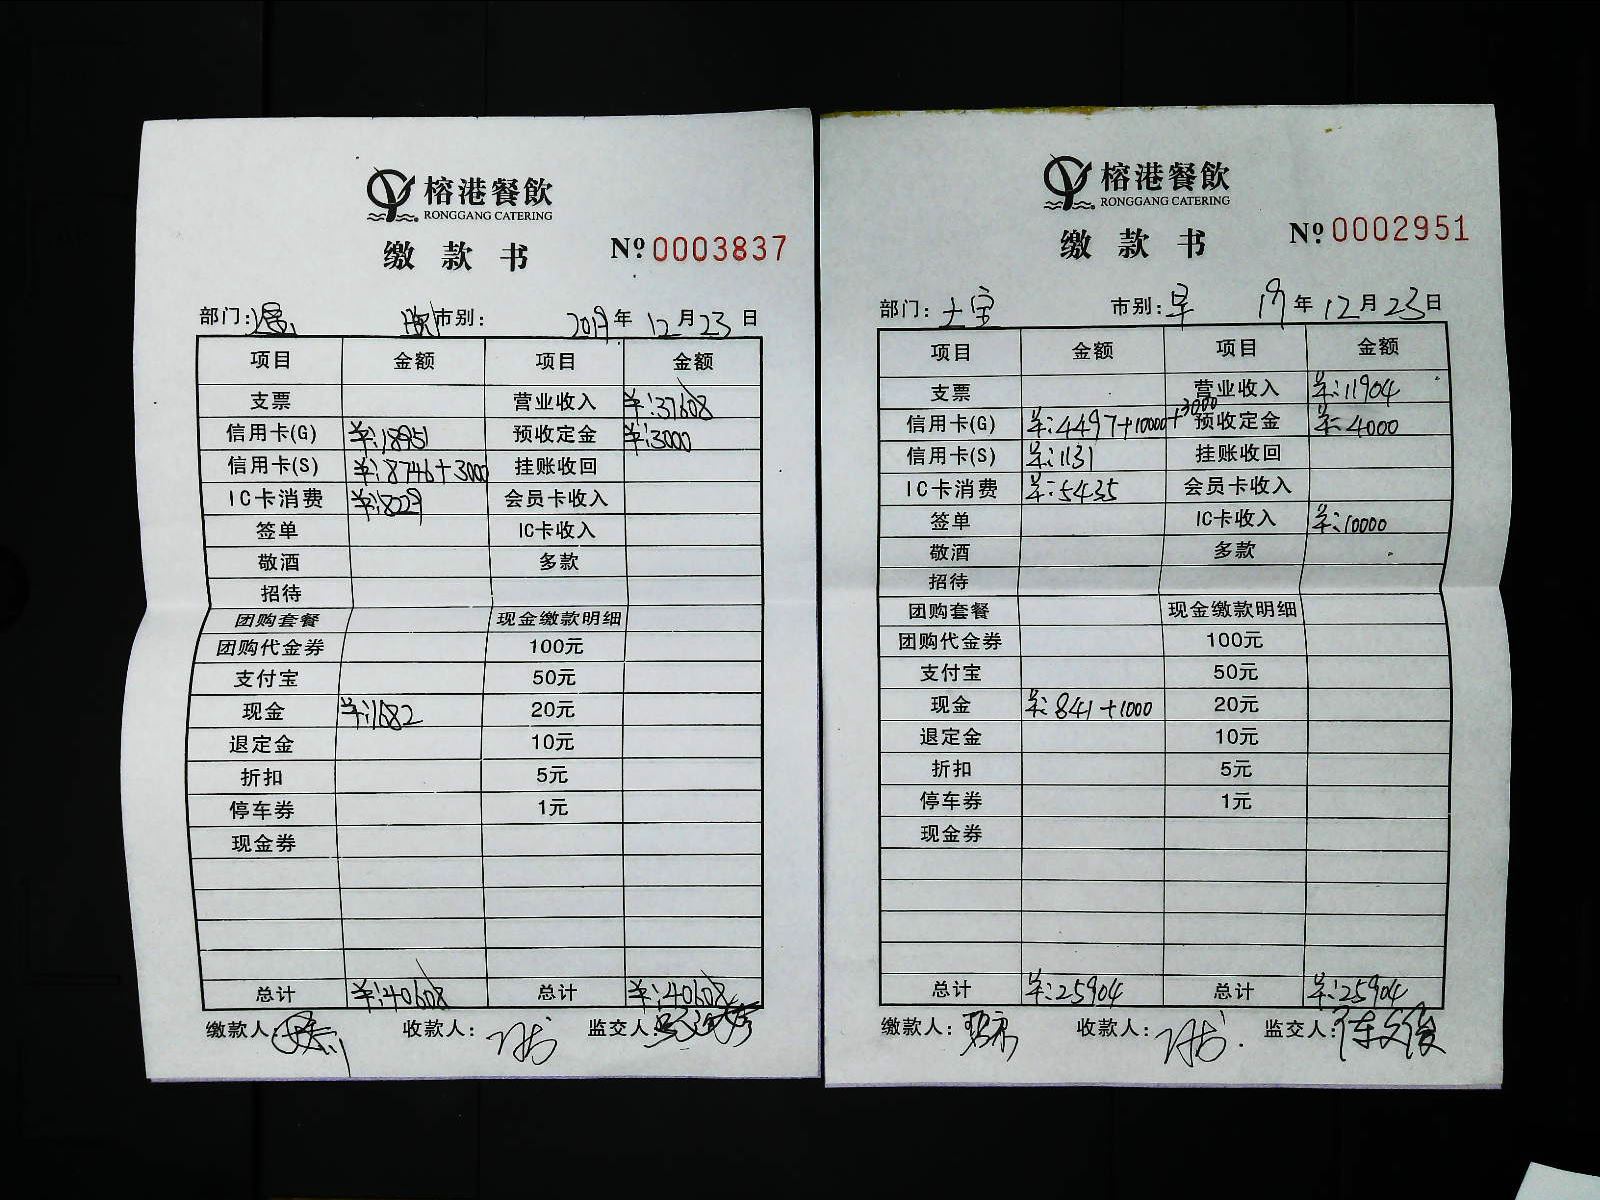 榕港餐飲
RONGGANG CATERING
缴款书 Nº 0003837
部门: 市别: 2019年12月23日
项目 金额 项目 金额
支票 营业收入 ¥:37608
信用卡(G) ¥:18951 预收定金 ¥:3000
信用卡(S) ¥:8746+3000 挂账收回
IC卡消费 ¥:8229 会员卡收入
签单 IC卡收入
敬酒 多款
招待
团购套餐 现金缴款明细
团购代金券 100元
支付宝 50元
现金 ¥:1682 20元
退定金 10元
折扣 5元
停车券 1元
现金券
总计 ¥:40608 总计 ¥:40608
缴款人: 收款人: 监交人:
榕港餐飲
RONGGANG CATERING
缴款书 Nº 0002951
部门: 大宝 市别: 早 19年12月23日
项目 金额 项目 金额
支票 营业收入 ¥:11904
信用卡(G) ¥:4497+10000+3000 预收定金 ¥:4000
信用卡(S) ¥:1131 挂账收回
IC卡消费 ¥:5435 会员卡收入
签单 IC卡收入 ¥:10000
敬酒 多款
招待
团购套餐 现金缴款明细
团购代金券 100元
支付宝 50元
现金 ¥:841+1000 20元
退定金 10元
折扣 5元
停车券 1元
现金券
总计 ¥:25904 总计 ¥:25904
缴款人: 收款人: 监交人: 陈文俊